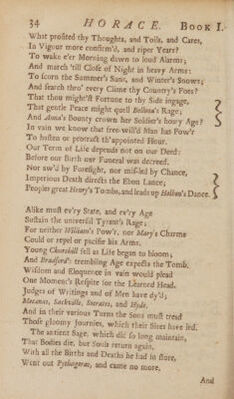 34 HORACE. BOOK I.
What profited thy Thoughts, and Toils, and Cares,
In Vigour more confirm'd, and riper Years?
To wake e'er Morning dawn to loud Alarms;
And march 'till Close of Night in heavy Arms:
To scorn the Summer's Suns, and Winter's Snows;
And search thro' every Clime thy Country's Foes?
That thou might'st Fortune to thy Side ingage,
That gentle Peace might quell Bellona's Rage;
And Anna's Bounty crown her Soldier's hoary Age?
In vain we know that free-will'd Man has Pow'r
To hasten or protract th' appointed Hour.
Our Term of Life depends not on our Deed:
Before our Birth our Funeral was decreed.
Nor aw'd by Foresight, nor mis-led by Chance,
Imperious Death directs the Ebon Lance;
Peoples great Henry's Tombs, and leads up Holben's Dance.
Alike must ev'ry State, and ev'ry Age
Sustain the universal Tyrant's Rage;
For neither William's Pow'r, nor Mary's Charms
Could or repel or pacifie his Arms.
Young Churchill fell as Life began to bloom;
And Bradford's trembling Age expects the Tomb.
Wisdom and Eloquence in vain would plead
One Moment's Respite for the Learned Head.
Judges of Writings and of Men have dy'd;
Mecænas, Sackville, Socrates, and Hyde.
And in their various Turns the Sons must tread
Those gloomy Journies, which their Sires have led.
The antient Sage, which did so long maintain,
That Bodies die, but Souls return again,
With all the Births and Deaths he had in store,
Went out Pythagoras, and came no more.
And